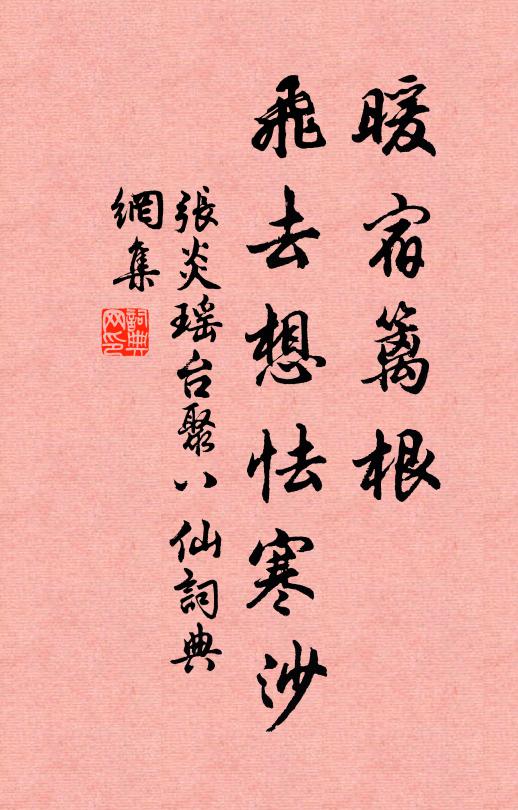 暖宿篱根
飛去想怯寒沙
張炎瑶台聚八仙詞典
網集
詞典网印